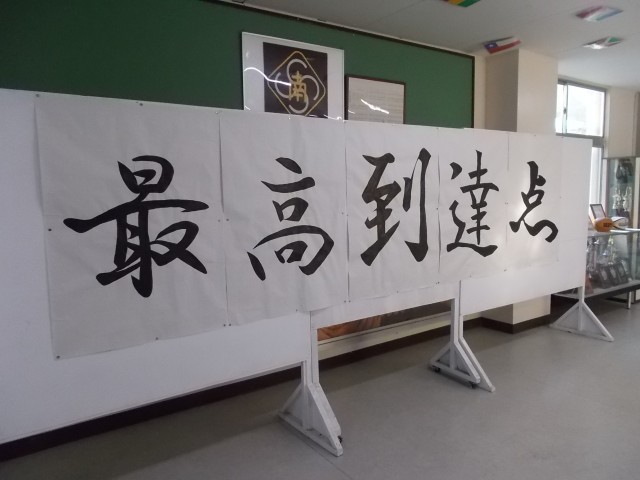 南
最高到達点